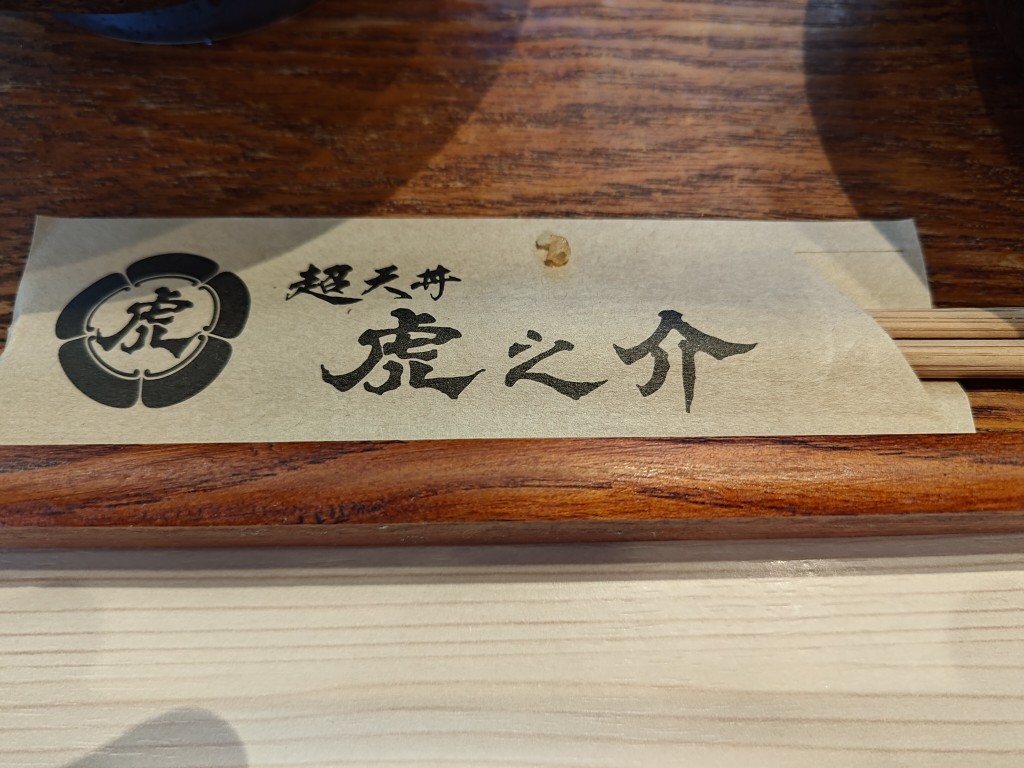 虎
超天丼
虎之介